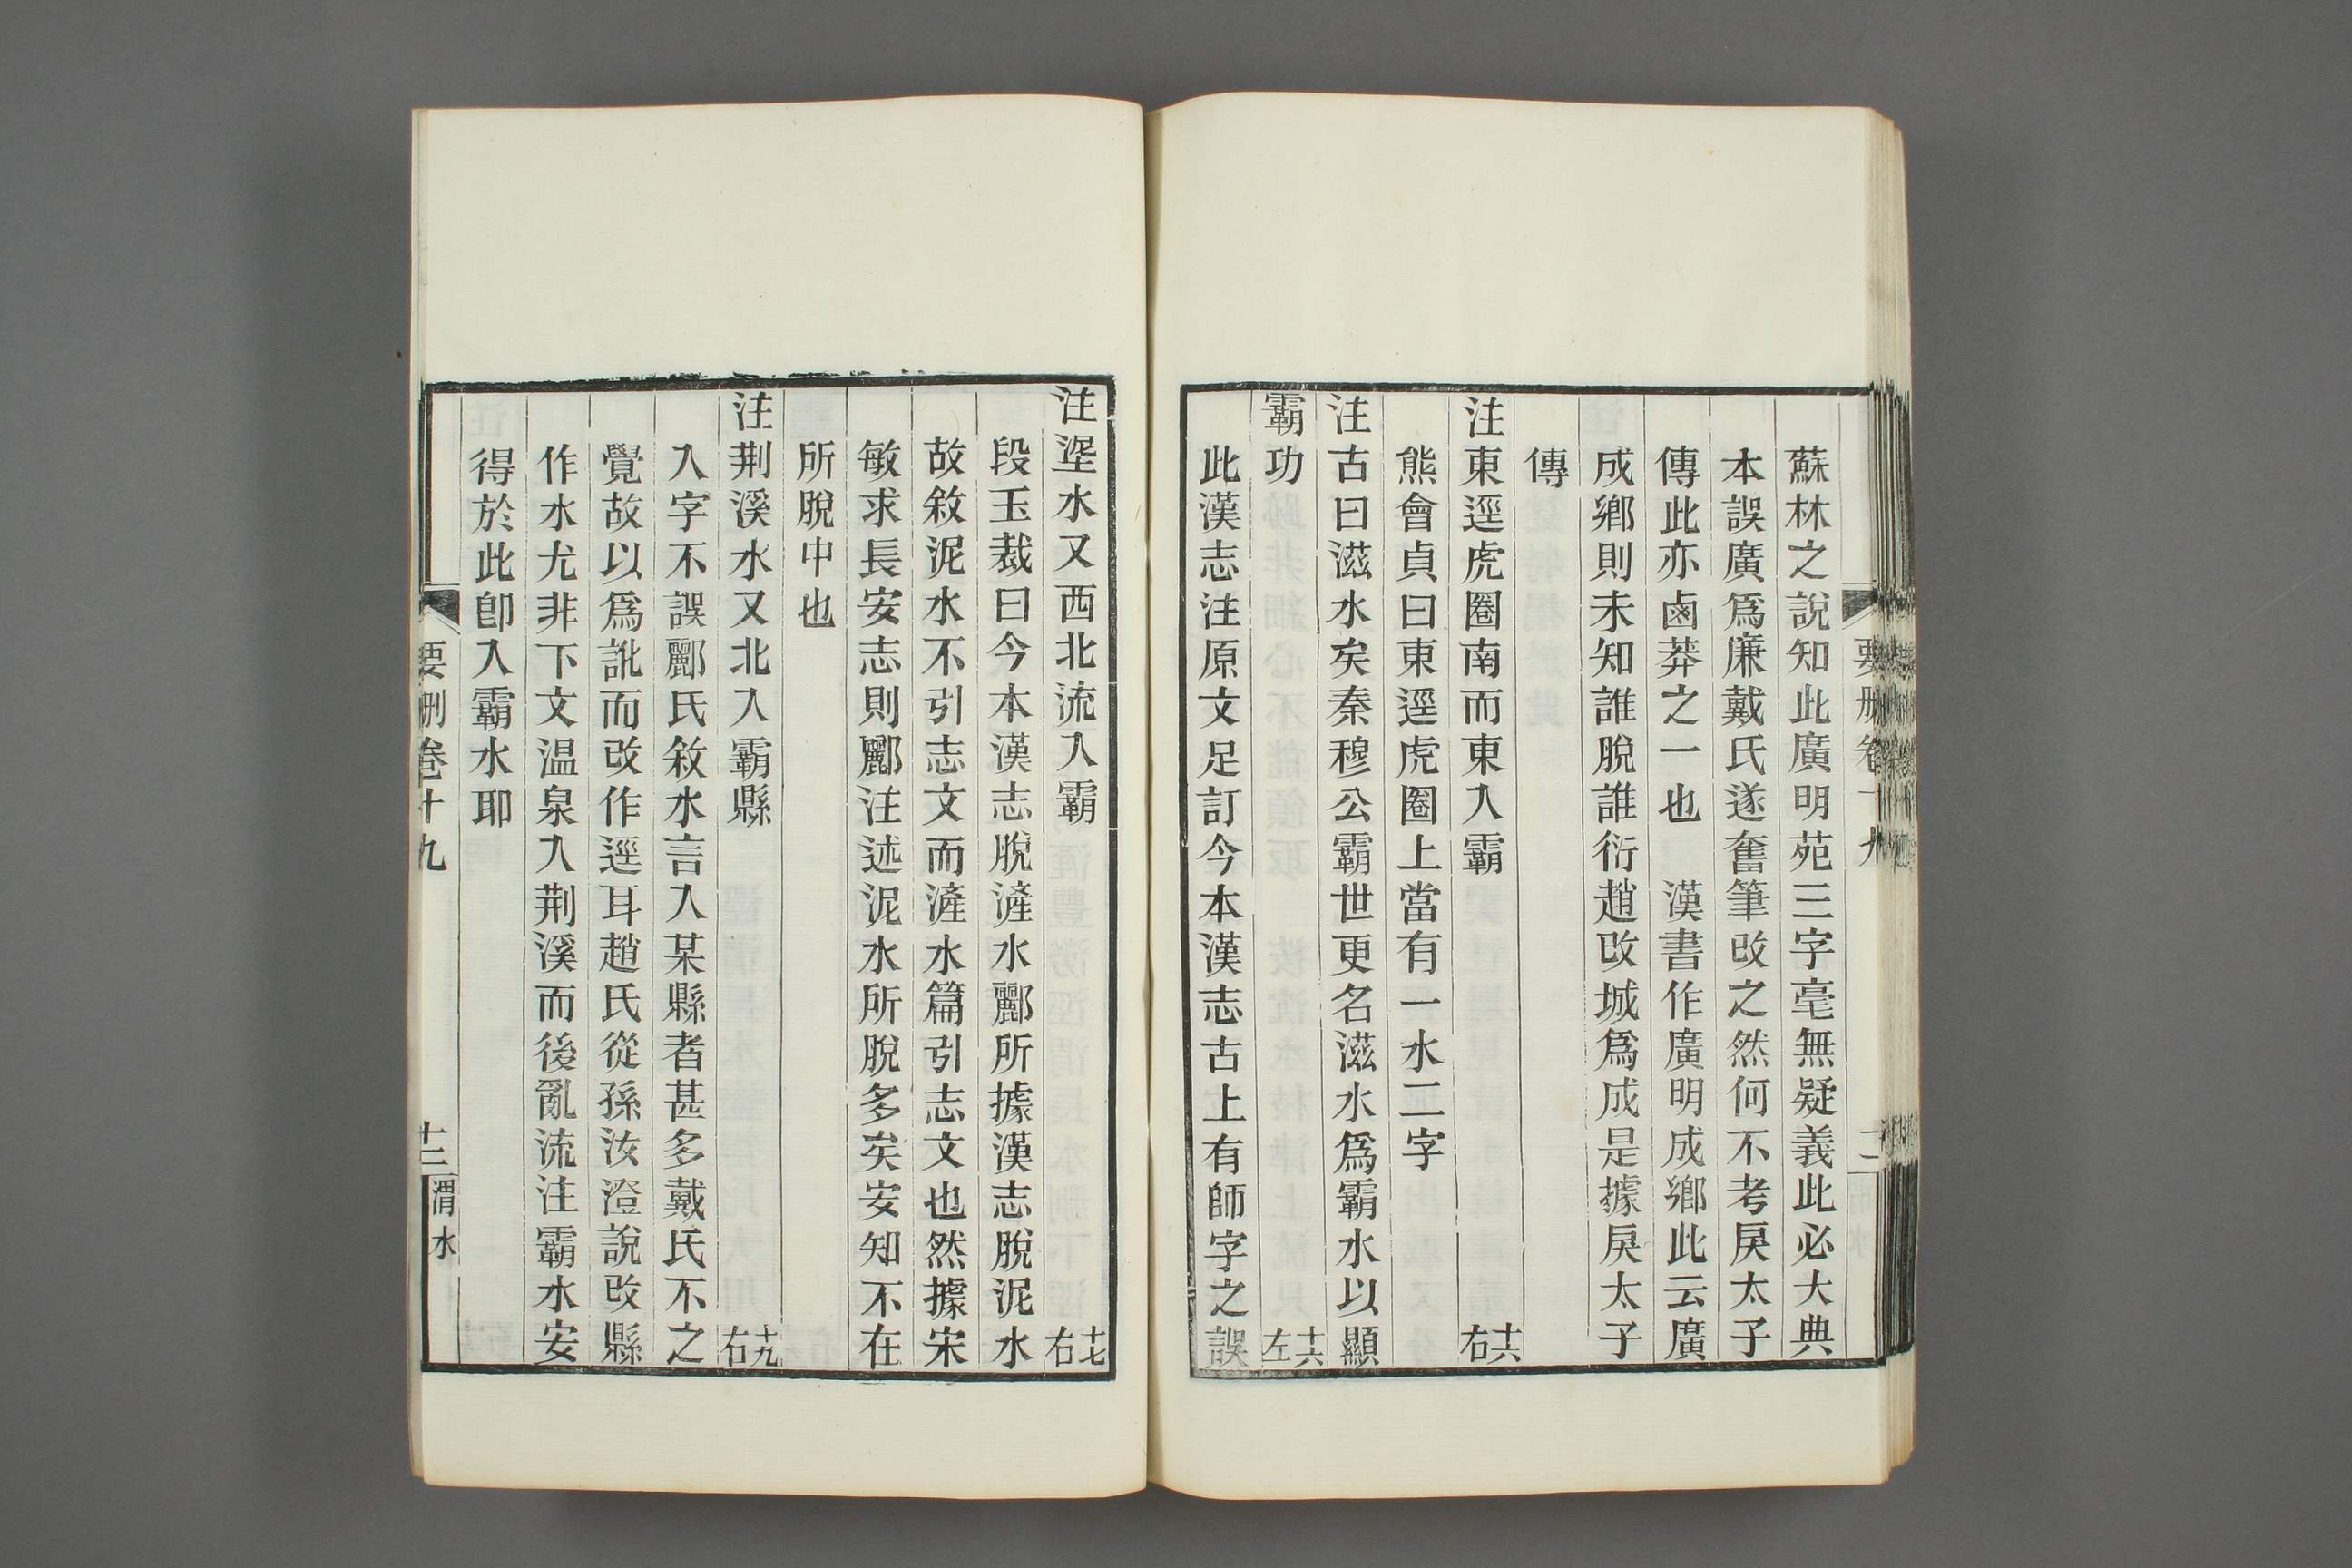 蘇林之說知此廣明苑三字毫無疑義此必大典
本誤廣爲廉戴氏遂奮筆改之然何不考戾太子
傳此亦鹵莽之一也 漢書作廣明成鄉此云廣
成鄉則未知誰脫誰衍趙改城爲成是據戾太子
傳
注東逕虎圈南而東入霸 十六右
熊會貞曰東逕虎圈上當有一水二字
注古曰滋水矣秦穆公霸世更名滋水爲霸水以顯
霸功 十六左
此漢志注原文足訂今本漢志古上有師字之誤
注埿水又西北流入霸 十七右
段玉裁曰今本漢志脫滻水酈所據漢志脫泥水
故敘泥水不引志文而滻水篇引志文也然據宋
敏求長安志則酈注述泥水所脫多矣安知不在
所脫中也
注荆溪水又北入霸縣 十九右
入字不誤酈氏敘水言入某縣者甚多戴氏不之
覺故以爲訛而改作逕耳趙氏從孫汝澄說改縣
作水尤非下文温泉入荆溪而後亂流注霸水安
得於此卽入霸水耶
要刪卷十九 十二 渭水